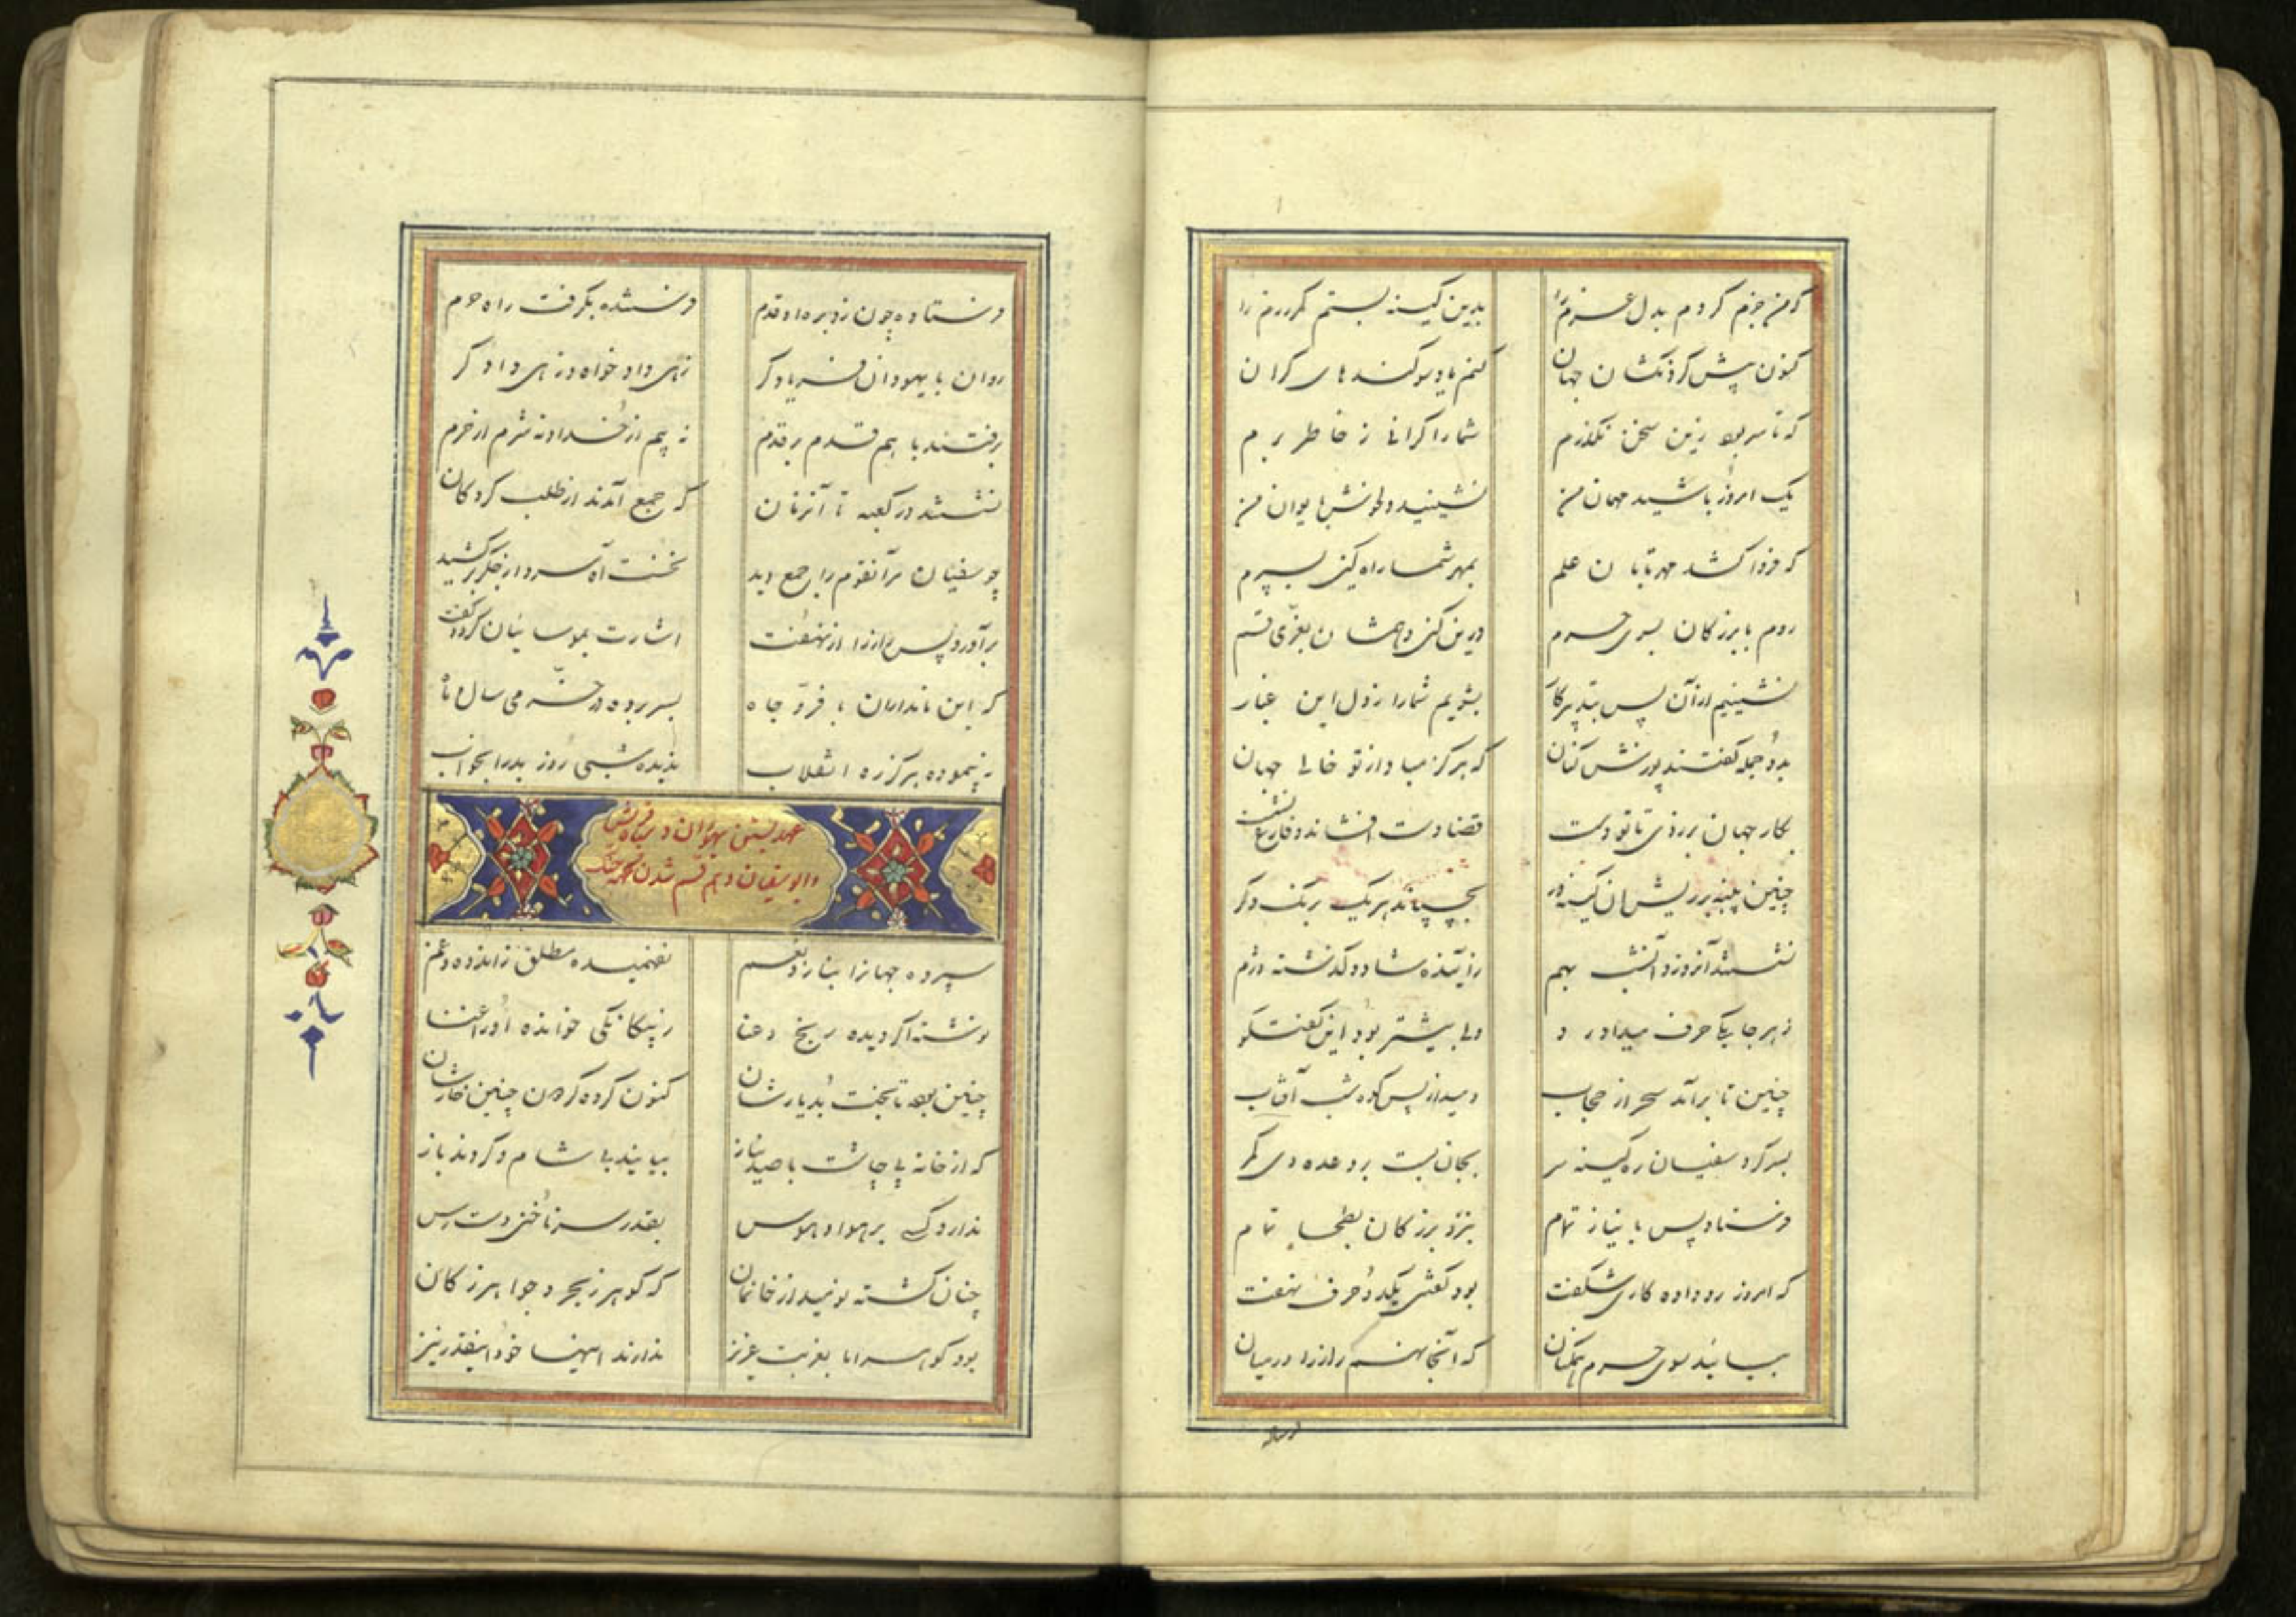 که من جزم کردم بدل عزم را بدین کینه بستم کمر رزم را
کنون پیش کردنکشان جهان کنم یاد سوکندهای کران
که تا سر بود زین سخن نکذرم شما را کرانی ز خاطر برم
یک امروز باشید مهمان من نشینید دلخوش بایوان من
که فردا کشد مهر تابان علم بمهر شما راه کین بسپرم
روم با بزرکان بسوی حرم درین کین دهمشان بعزّی قسم
نشینیم از آن پس بتدبیر کار بشویم شما را ز دل این غبار
بدو جمله کفتند پوزش کنان که هرکز مبادا ز تو خالی جهان
بکار جهان برزدی تا تو دست قضا دست افشاند و فارغ نشست
چنین پنبه بر ریششان کینه ور بچسپاند هر یک برنک دکر
نشستند آنروز و آنشب بهم ز آینده شاد و کذشته دژم
ز هر جا یکی حرف میداد رو ولی بیشتر بود این کفتکو
چنین تا برآمد سحر از حجاب دمید از پس کوه شب آفتاب
بسر کرد سفیان ره کینه سر بجان بست بر وعده دی کمر
فرستاد پس با نیاز تمام بنزد بزرکان بطحا پیام
که امروز رو داده کاری شکفت بود کفتنی یکدو حرف نهفت
بیایند سوی حرم همکنان که آنجا نهم راز را در میان
فرستاده
فرستاده چون زد بره او قدم فرستنده بکرفت راه حرم
روان با یهودان فریادکر زهی دادخواه و زهی دادکر
برفتند با هم قدم بر قدم نه بیم از خدا و نه شرم از حرم
نشستند در کعبه تا آنزمان که جمع آمدند از طلب کردکان
چو سفیان مر آنقوم را جمع دید نخست آه سرد از جکر برکشید
برآورد پس راز را از نهفت اشارت بموسائیان کرد و کفت
که این نامداران با فرّ و جاه بسر برده در خرّمی سال و ماه
نه پیموده هرکز ره انقلاب ندیده شبی روز بد را بخواب
عهد بستن یهودان در میان قریش
و ابوسفیان و هم قسم شدن بجهت جنک
سپرده جهانرا بناز و نعم نفهمیده مطلق ز اندوه و غم
نوشته کردیده رنج و عنا ز بیکانکی خوانده او را عنا
چنین بود تا بخت بد یارشان کنون کرده کردون چنین خوارشان
که از خانه بی چاشت با صد نیاز بیایند بی شام و کردند باز
ندارد کسی بر هوا و هوس بقدر سر ناخنی دسترس
چنان کشته نومید از خانمان که کوهر ز بحر و جواهر ز کان
بود کوهر اما بغربت عزیز ندارند اینها خود اینقدر نیز